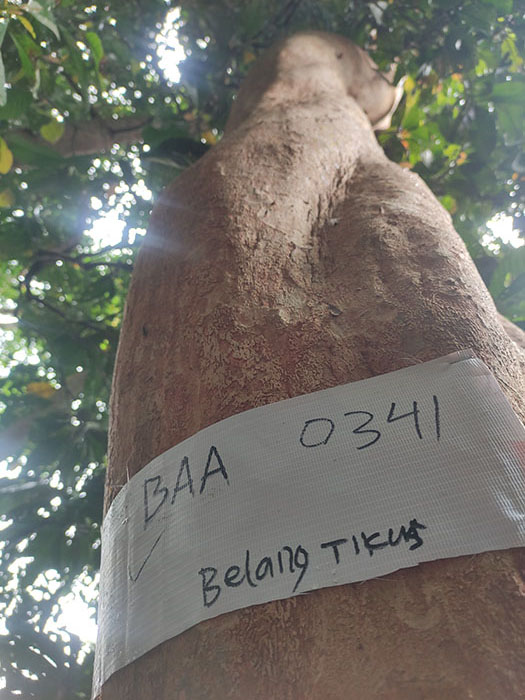 BAA 0341
Belang Tikus